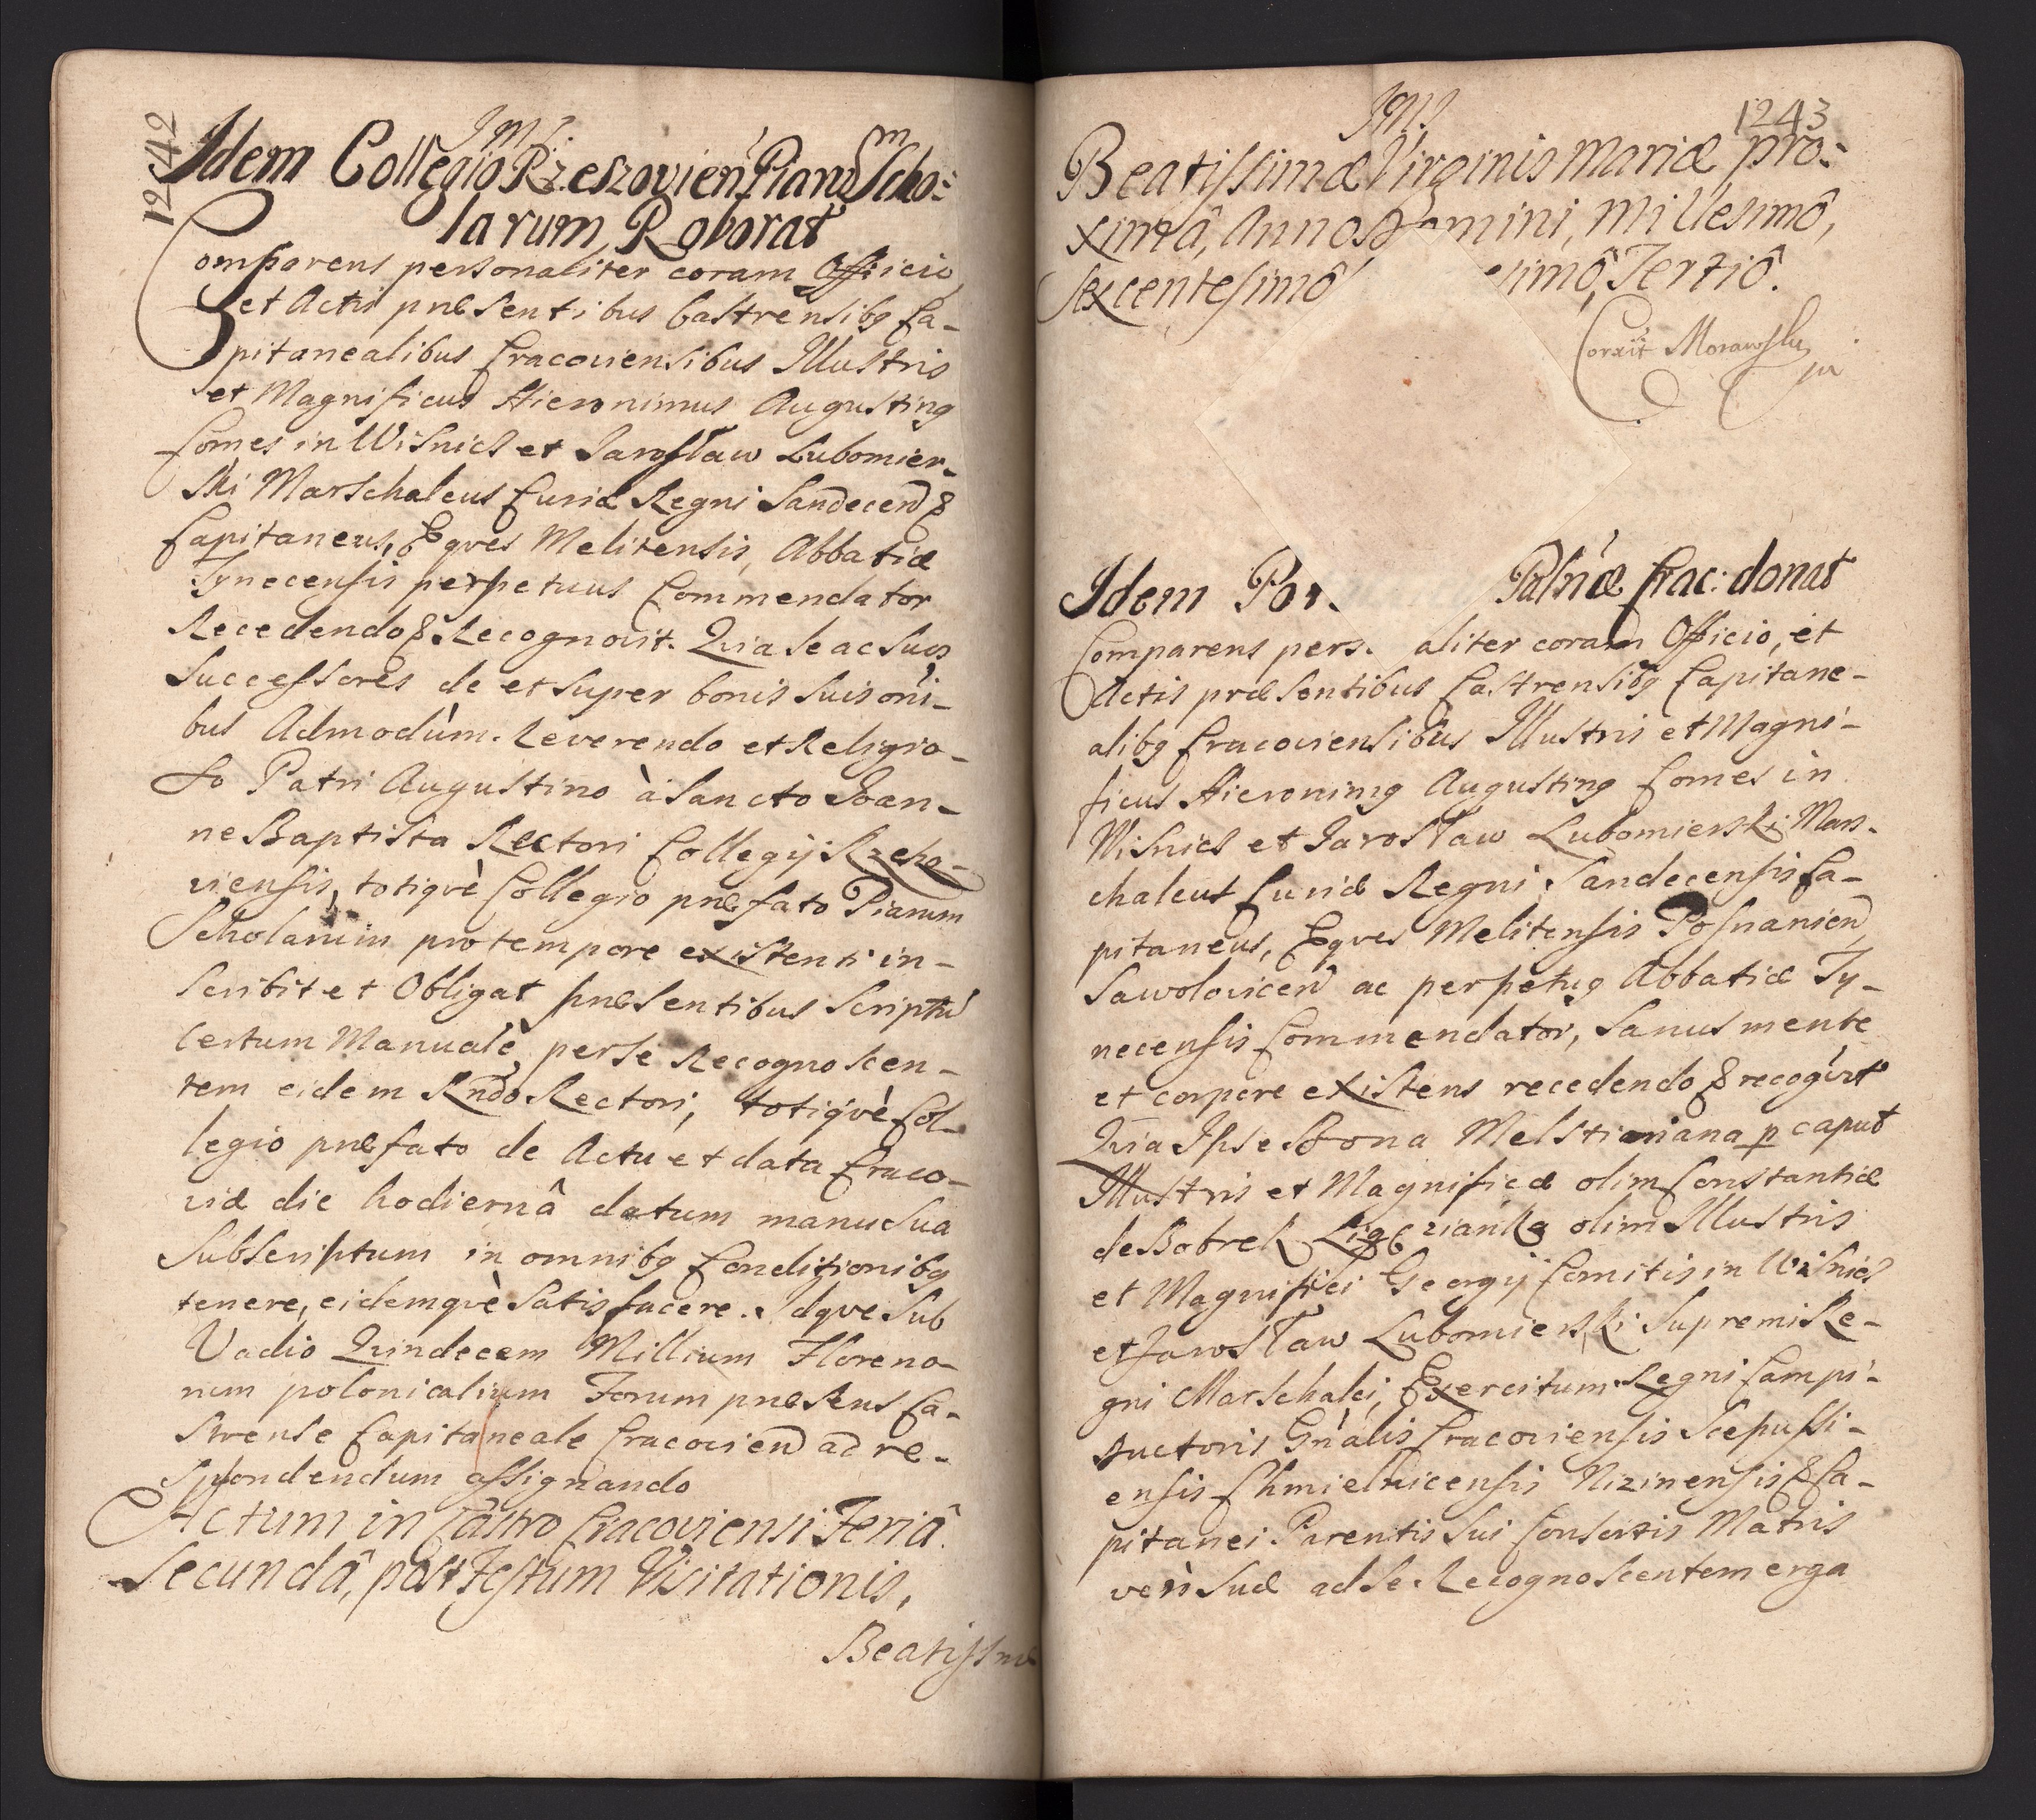 1242
J M J.
Idem Collegio Rzeszovien Piarum Scho:
larum Roborat
Comparens personaliter coram Officio
et Actis præsentibus Castrensibg Ca-
pitanealibus Cracoviensibus Illustris
et Magnificus Hieronimus Augusting
Comes in Wisnicz et Jarosław Lubomier-
ski Marschaleus Curiæ Regni Sandecen &
Capitaneus, Eqves Melitensis, Abbatiæ
Tynecensis perpetuus Commendator
Recedendo & Recognovit. Quia se ac suos
Successores de et super bonis suis omni-
bus Admodùm Reverendo et Religio-
so Patri Augustino à Sancto Ioan-
ne Baptista Rectori Collegij Rzeszo-
viensis, totiqvè Collegio præfato Piarum
Scholarum pro tempore existenti in-
scribit et Obligat præsentibus Scriptu
Certum Manualè per se Recognoscen-
tem eidem Rndo Rectori, totiqvè Col-
legio præfato de Actu et data Craco-
viæ die hodiernâ datum manu sua
Subscriptum in omnibg Conditionibg
tenere, eidemqvè Satisfacere. Idqve Sub
Vadio Quindecem Millium Floreno-
rum polonicalium Forum præsens Ca-
strense Capitaneale Cracovien ad re-
spondendum assignando
Actum in Castro Cracoviensi Feriâ
Secundâ, post Festum Visitationis,
Beatissimæ
1243
J M J
Beatissimæ Virginis Mariæ pro:
ximâ, Anno Domini, Millesimô,
Sexcentesimô simô, Tertiô.
Corxit Morawsky
Idem Por. Palnæ Crac: donat
Comparens pers. aliter coram Officio, et
Actis præsentibus Castrensibg Capitane-
alibg Cracoviensibus Illustris et Magni-
ficus Hieronimg Augusting Comes in
Wisnicz et Jarosław Lubomierski Mars-
chaleus Curiæ Regni Sandecensis Ca-
pitaneus, Eqves Melitensis Posnanien
ac perpetug Abbatiæ Ty-
necensis Commendator, Sanus mente
et corpore existens recedendo & recogvit
Quia Ipse Bona Melstiniana p caput
Illustris et Magnificæ olim Constantiæ
de Bobrek Ligezianka olim Illustris
et Magnifici Georgij Comitis in Wisnicz
et Jarosław Lubomierski Supremi Re-
gni Marschalci, Exercitum Regni Campi-
ductoris Gnalis Cracoviensis Scepussi-
ensis Chmielnicensis Nizinensis & Ca-
pitanei. Parentis Sui Consortis Matris
verò Suæ ad se Recognoscentem erga